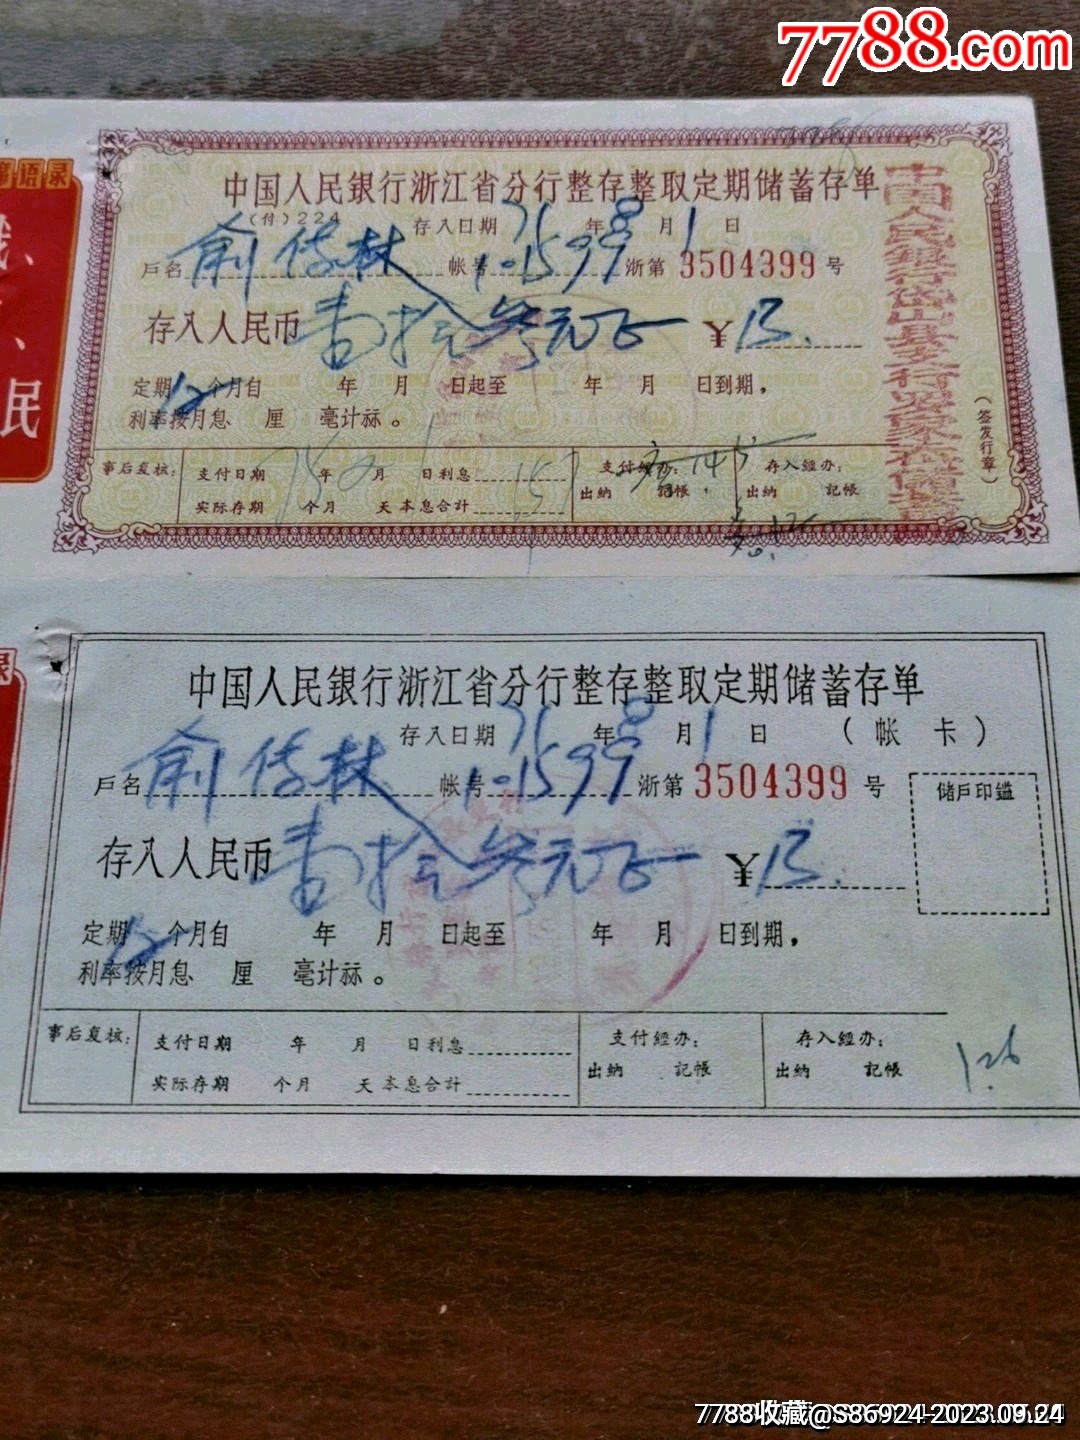 7788.com
席语录
民
中国人民銀行浙江省分行整存整取定期储蓄存单
(付)224
存入日期 71年8月1日
戶名 俞信林 帐号 1-1599 浙第 3504399 号
存入人民币 壹拾叁元正 ¥13.
定期12个月自 年 月 日起至 年 月 日到期,
利率按月息 厘 毫计祘。
中国人民銀行岱山县支行
(签发行章)
事后复核: 支付日期 年 月 日利息 支付經办: 存入經办:
实际存期 个月 天本息合計 出納 記帳 出納 記帳
中国人民銀行浙江省分行整存整取定期储蓄存单
存入日期 71年8月1日 (帐 卡)
戶名 俞信林 帐号 1-1599 浙第 3504399 号
储戶印鑑
存入人民币 壹拾叁元正 ¥13.
定期12个月自 年 月 日起至 年 月 日到期,
利率按月息 厘 毫计祘。
事后复核: 支付日期 年 月 日利息 支付經办: 存入經办:
实际存期 个月 天本息合計 出納 記帳 出納 記帳
1.26
7788收藏@S86924-2023.09.24